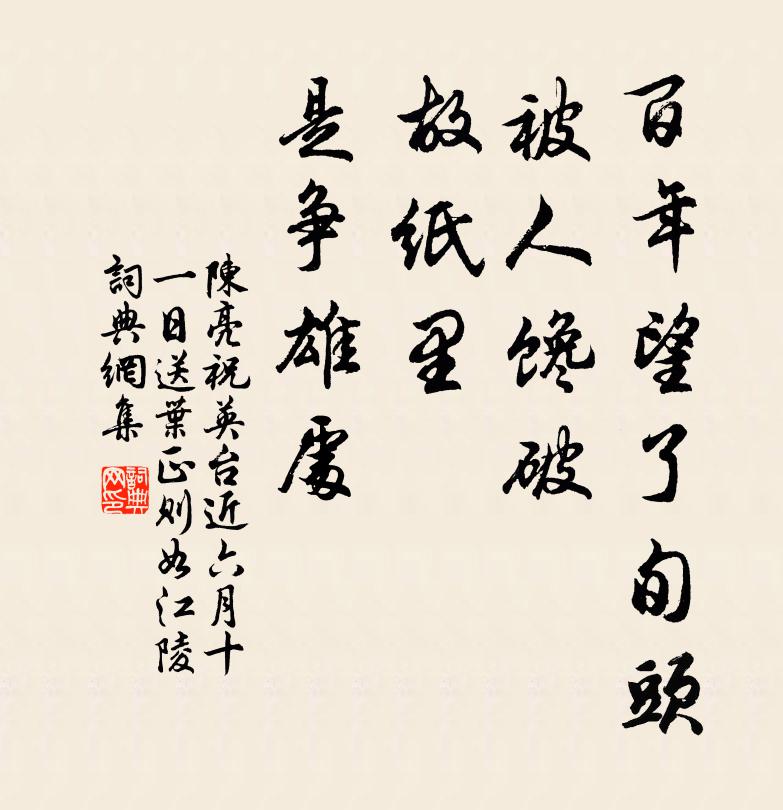 百年望了旬頭
被人馋破
故纸里
是争雄處
陳亮祝英台近六月十
一日送葉正则如江陵
詞典網集
詞典
网印